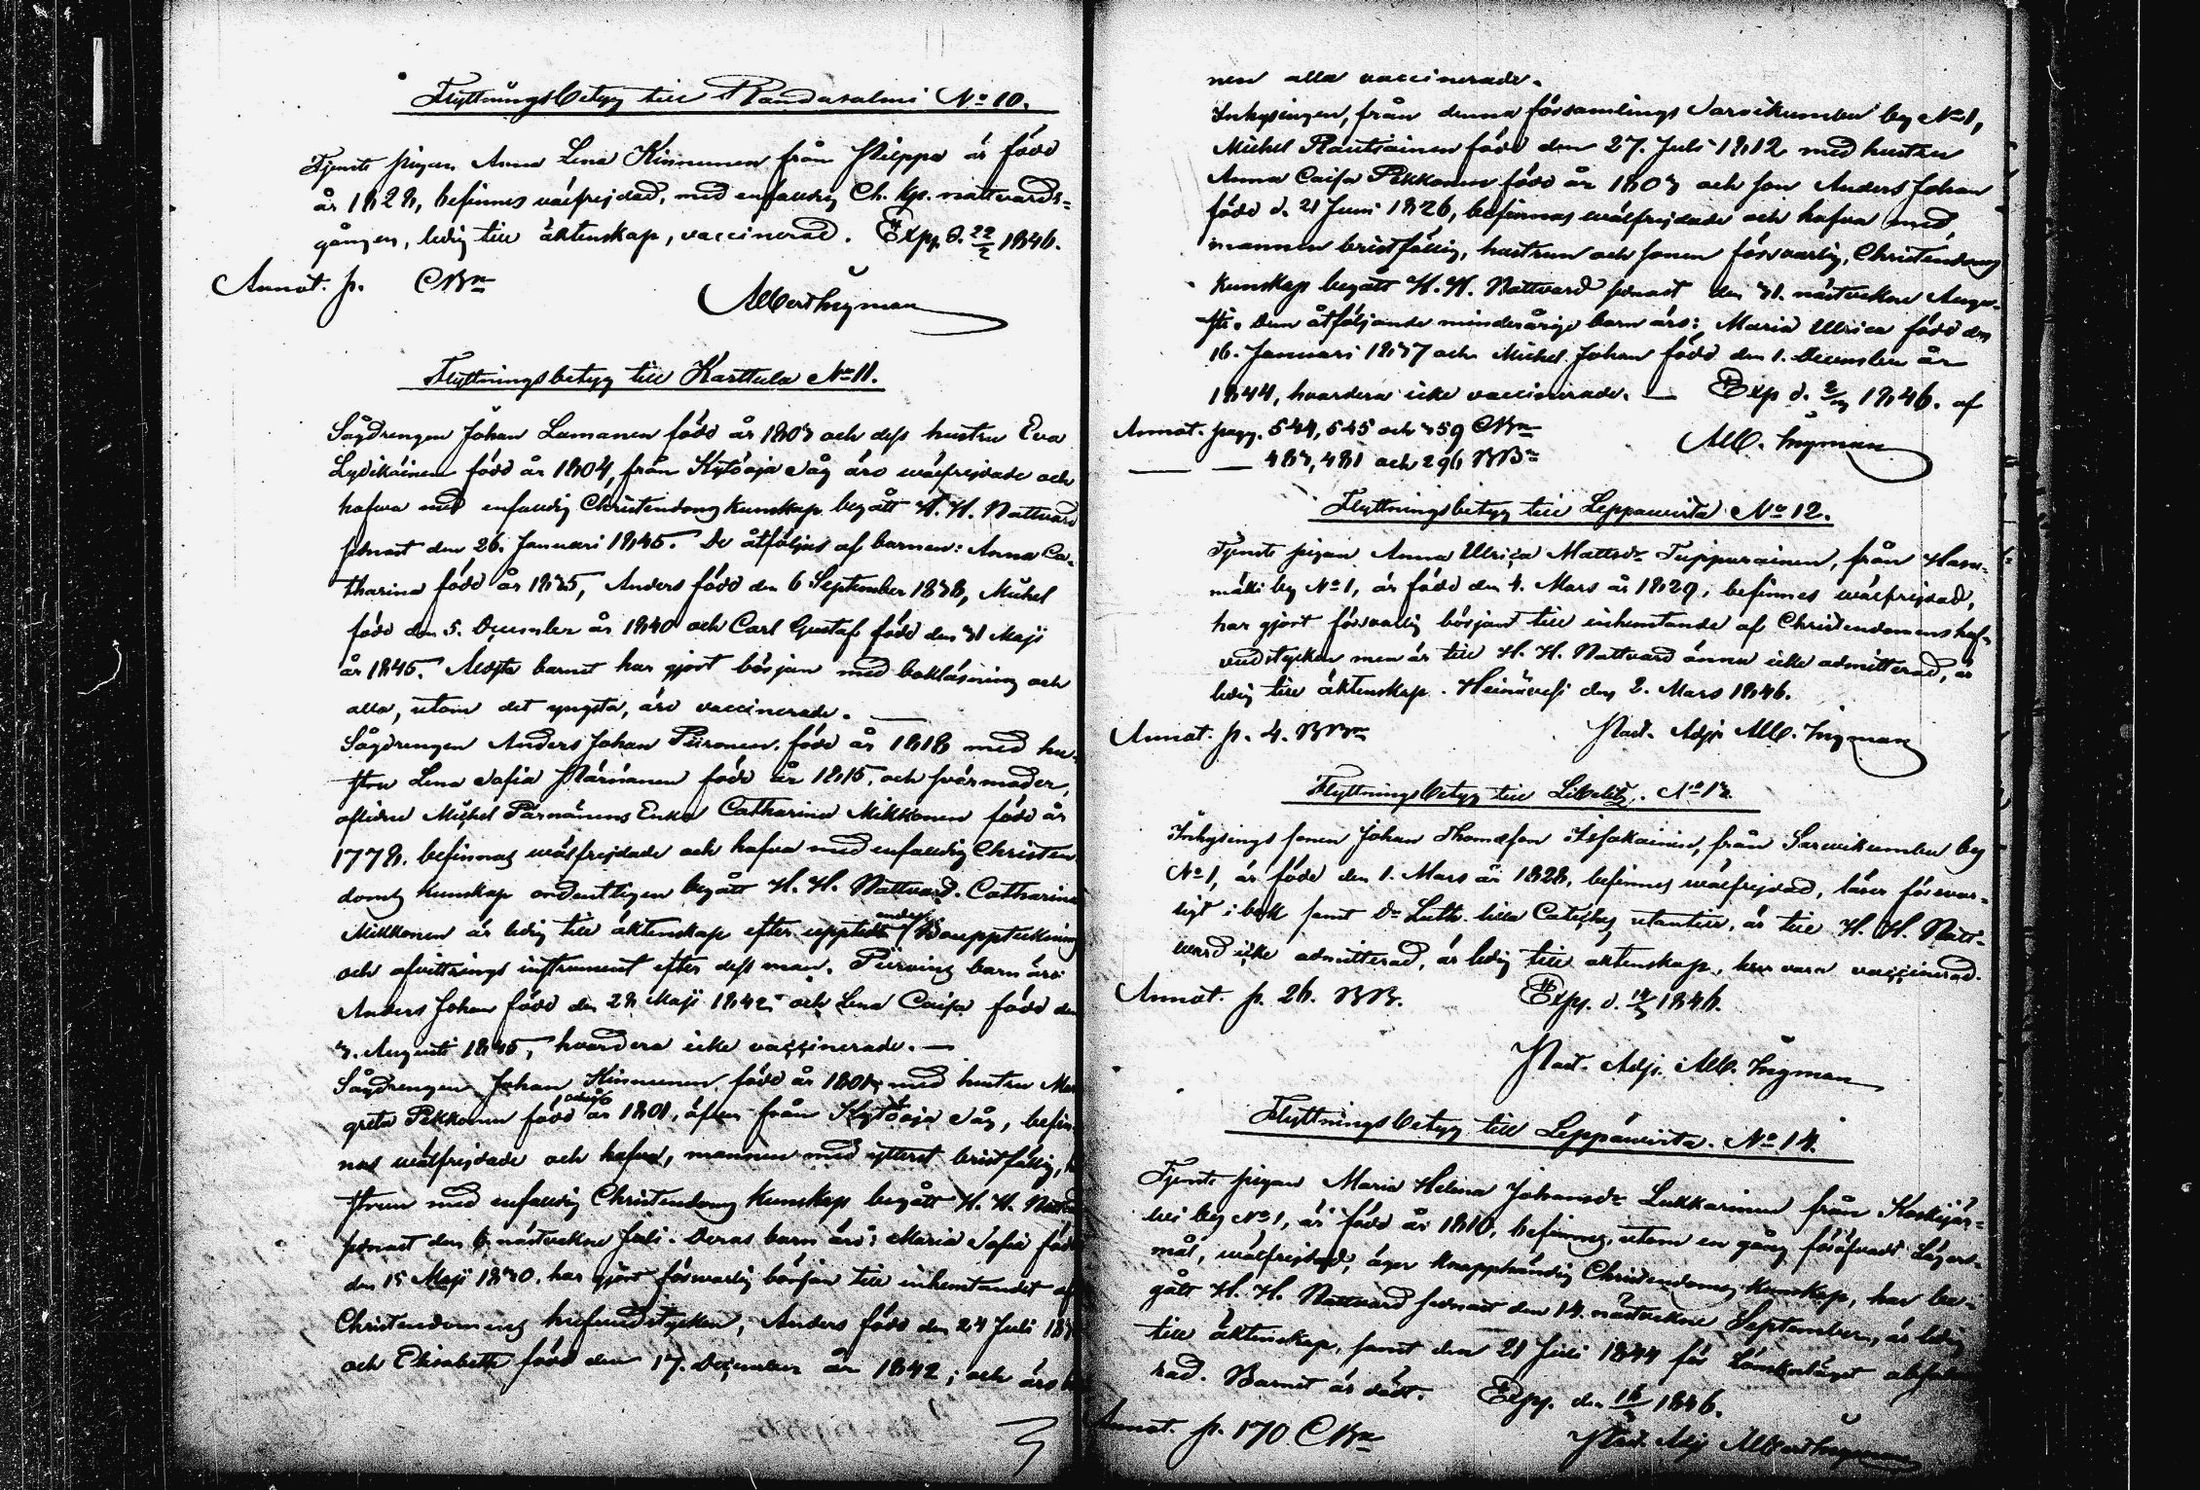 Flyttningsbetyg till Randasalmi No 10.
Tjenste pigan Anna Lena Kinnunen från är född
år 1828, befinnes välfrejdad, med enfaldig Ch. kps. nattvards-
gången, ledig till äktenskap, vaccinerad. Exp. d. 22/2 1846.
Annot. p. CBn
Albert Ingman
Flyttningsbetyg till Karttula No 11.
Sågdrengen Johan Lamanen född år 1803 och dess hustru Eva
Lydikäinen född år 1804, från Kytöoja Såg äro wälfrejdade och
hafwa med enfaldig Christendoms kunskap begått H. H. Nattvard
sednast den 26. Januari 1845. De åtföljas af barnen: Anna Ca-
tharina född år 1835, Anders född den 6 September 1838, Michel
född den 5. December år 1840 och Carl Gustaf född den 31 Maji
år 1845. Äldsta barnet har gjort början med bokläsning och
alla, utom det yngsta, äro vaccinerade.
Sågdrengen Anders Johan Piironen född år 1818 med hu-
stru Lena Sofia Pärnänen född år 1815, och svärmoder,
aflidne Michel Pärnänens Enka Catharina Mikkonen född år
1778, befinnas wälfrejdade och hafva med enfaldig Christen
doms kunskap ordentligen begått H. H. Nattvard. Catharina
Mikkonen är ledig till äktenskap efter upptedt Bouppteckning
och afvittrings instrument efter dess man. Piironens barn äro:
Anders Johan född den 28 Maji 1842 och Lena Caisa född den
3. Augusti 1845, hvardera icke vaccinerade. —
Sågdrengen Johan Kinnunen född år 1803 med hustru Mar
greta Pekkonen född år 1801, äfven från Kytöoja Såg, befin
nas wälfrejdade och hafva, mannen med ytterst bristfällig,
strun med enfaldig Christendoms kunskap begått H. H. Nattvard
sednast den 6 nästvekne Juli. Deras barn äro: Maria Sofia född
den 15 Maji 1830, har gjort försvarlig början till inhemtandet af
Christendomens hufvudstycken, Anders född den 24 Juli
och Elisabeth född den 17. December år 1842; och äro
nen alla vaccinerade.
Inhysingen, från denna församlings Sarvikumbu by No 1,
Michel Rautiainen född den 27. Juli 1812 med hustru
Anna Caisa Pekkonen född år 1803 och son Anders Johan
född d. 21 Juni 1826, befinnas wälfrejdade och hafva med,
mannen bristfällig, hustrun och sonen försvarlig, Christendoms
kunskap begått H. H. Nattvard sednast den 31. nästvekne Augu-
sti. Dem åtföljande minderåriga barn äro: Maria Ulrica född den
16. Januari 1837 och Michel Johan född den 1. December år
1844, hvardera icke vaccinerade. — Exp d. 2/3 1846. af
Annot. pagg. 544, 545 och 359 CBn
— — 483, 481 och 296 BBn
Alb. Ingman
Flyttningsbetyg till Leppäwirta No 12.
Tjenste pigan Anna Ulrica Mattsdr Tuppurainen, från Hasu-
mäki by No 1, är född den 4. Mars år 1829, befinnes wälfrejdad,
har gjort försvarlig början till inhemtande af Christendomens huf-
vudstycken men är till H. H. Nattvard ännu icke admitterad, är
ledig till äktenskap. Heinävesi den 2. Mars 1846.
Annot. p. 4. BBn
Past. Adj. Alb. Ingman
Flyttningsbetyg till Libelitz. No 13.
Inhysings sonen Johan Thomasson från Sarvikumbu by
No 1, är född den 1. Mars år 1828, befinnes wälfrejdad, läser försvar-
ligt i bok samt Dr Luth. lilla Cateches utantill, är till H. H. Natt-
ward icke admitterad, är ledig till äktenskap, vaccinerad.
Annot. p. 26. BB. Exp. d. 1846.
Past. Adj. Alb. Ingman
Flyttningsbetyg till Leppäwirta. No 14.
Tjenste pigan Maria Helena Johansdr Lukkarinen från Koskijär-
wi by No 1, är född år 1810, befinnes, utom en gång föröfvadt Lägers-
mål, wälfrejdad, äger knapphändig Christendoms kunskap, har be-
gått H. H. Nattvard sednast den 14. nästvekne September, är ledig
till äktenskap, samt den 21 Juli 1844 för Lönskaläget
rad. Barnet är dödt. Exp. den 16/3 1846.
Annot. p. 170 CBn
Past. Adj. Albert Ingman